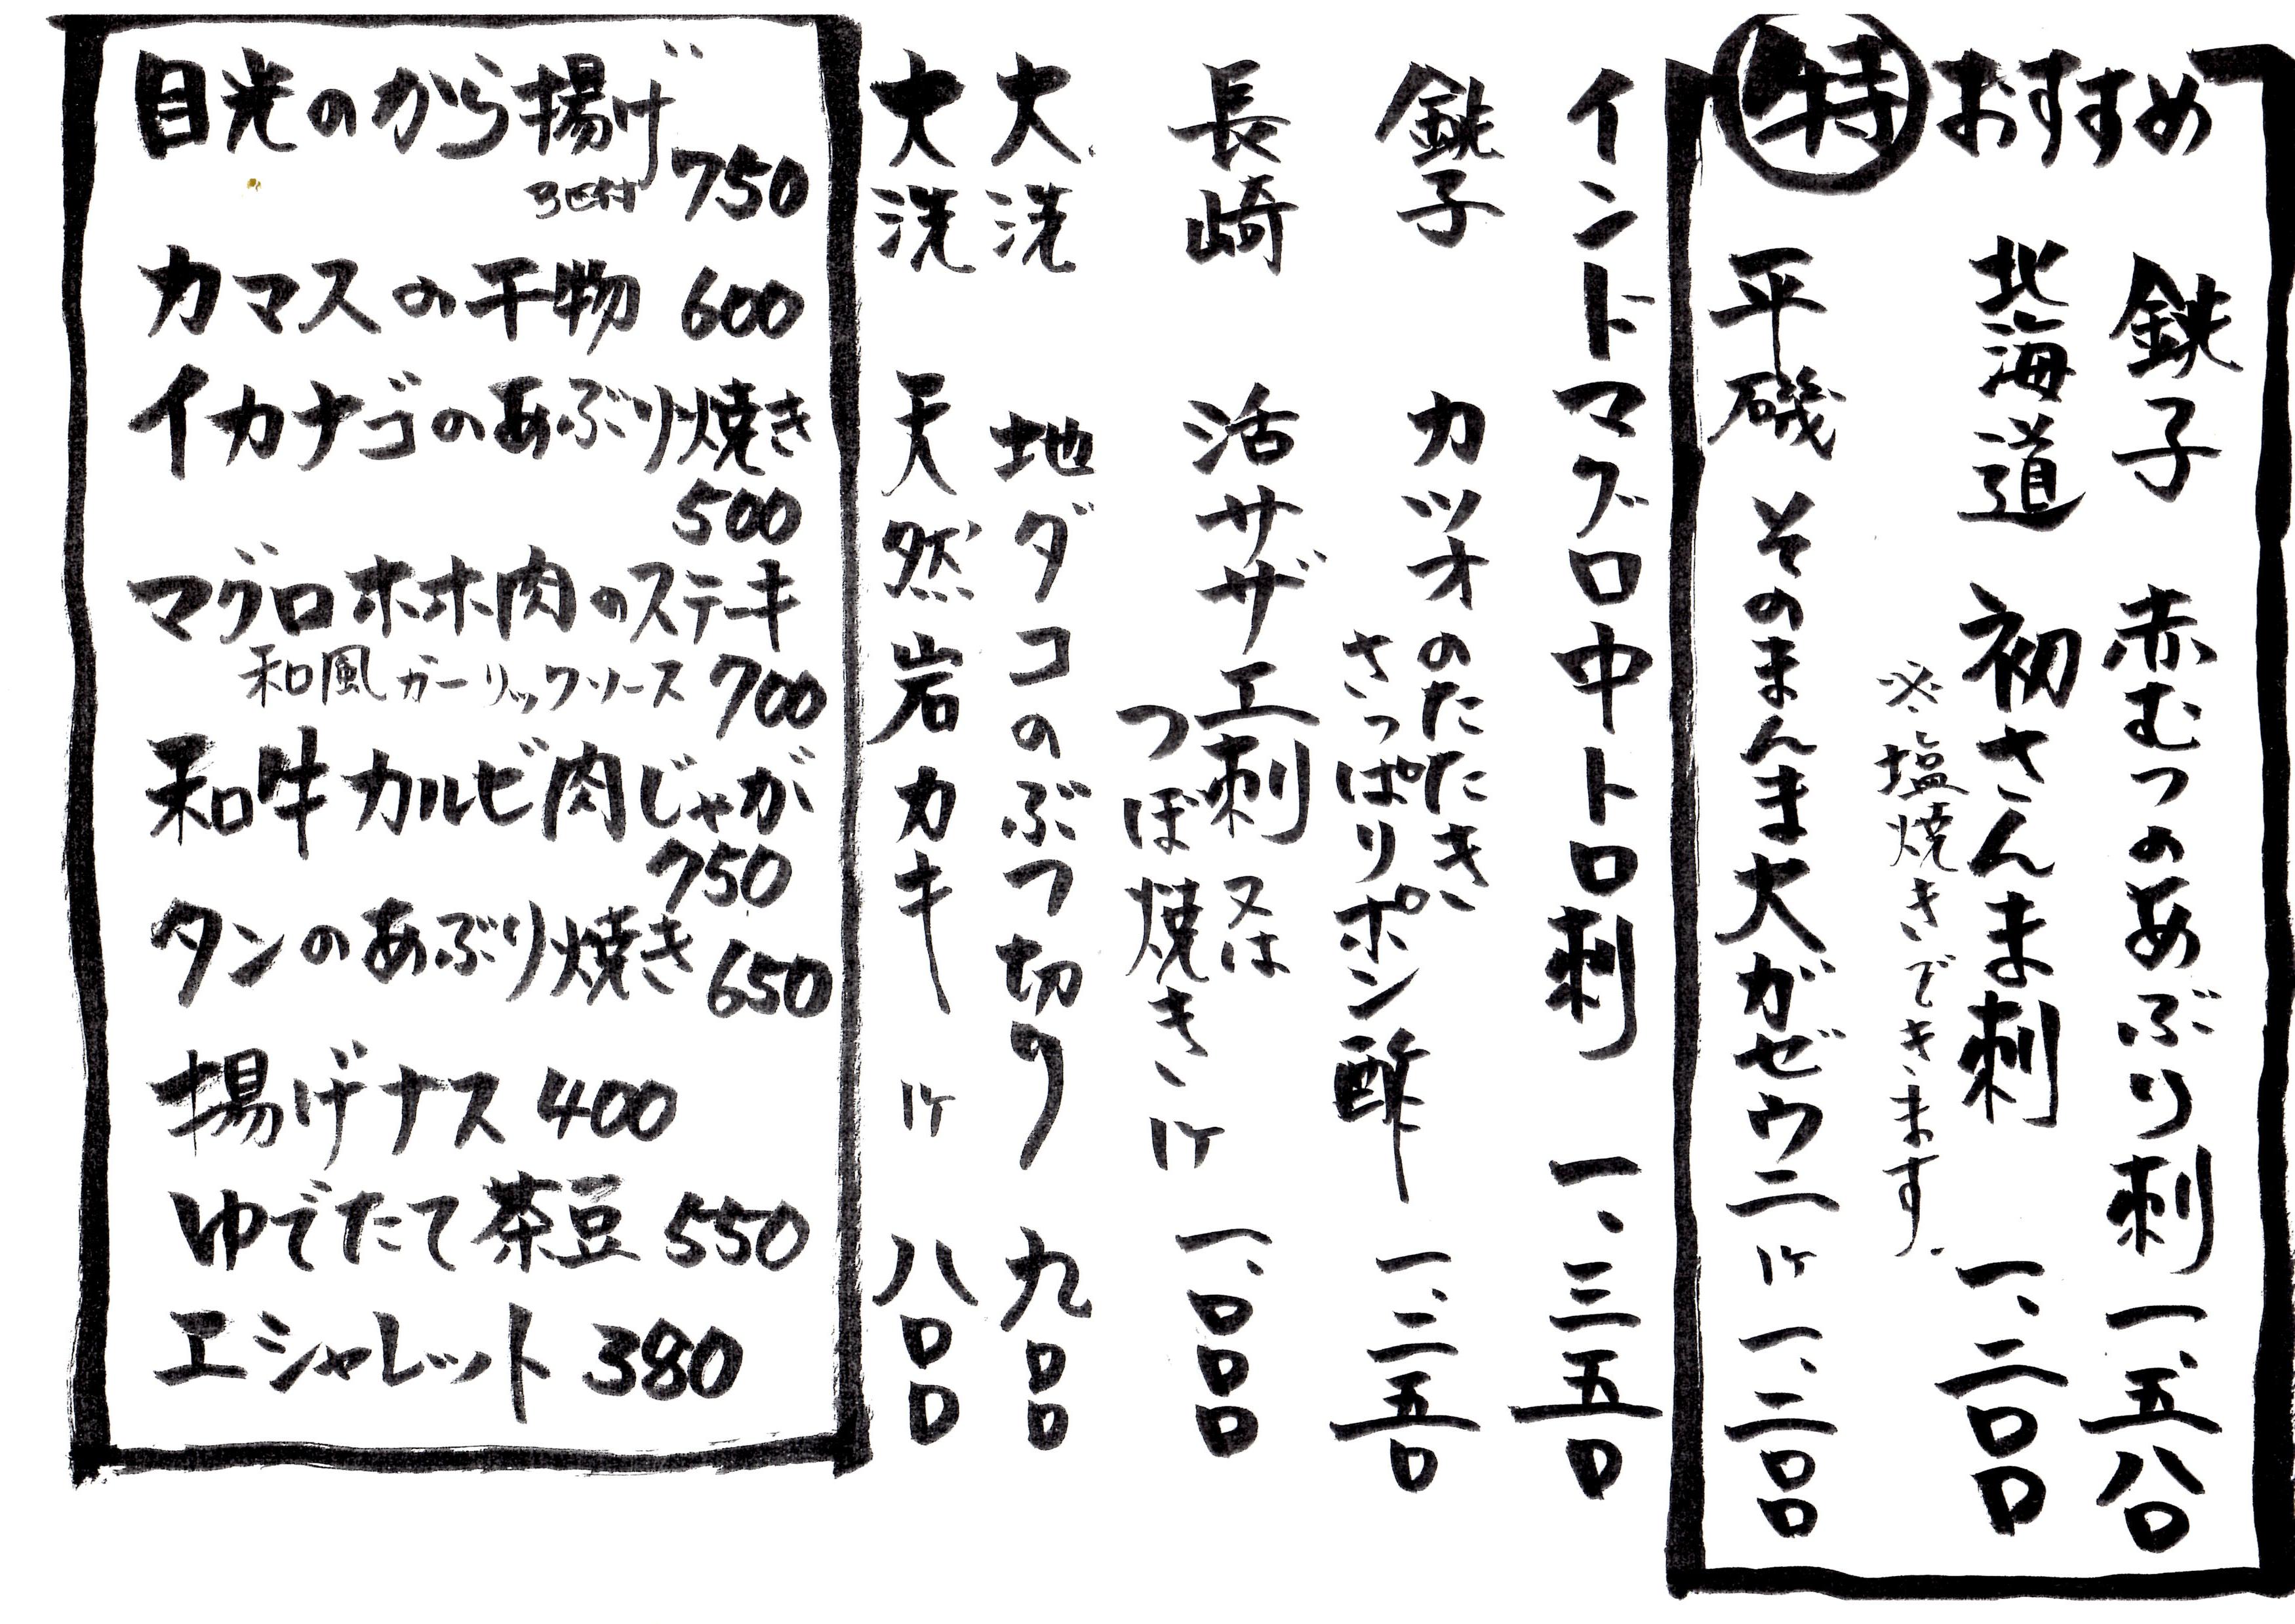 特おすすめ
銚子 赤むつのあぶり刺 一、五八〇
北海道 初さんま刺 一、二〇〇
※塩焼きできます。
平磯 そのまんま大がぜウニ 1ケ 一、二〇〇
インドマグロ中トロ刺 一、三五〇
銚子 カツオのたたき
さっぱりポン酢 一、二五〇
長崎 活サザエ刺 又は
つぼ焼き 1ケ 一、〇〇〇
大洗 地ダコのぶつ切り 九〇〇
大洗 天然岩カキ 1ケ 八〇〇
目光のがら揚げ
750
カマスの干物 600
イカナゴのあぶり焼き
500
マグロホホ肉のステーキ
和風ガーリックソース 700
和牛カルビ肉じゃが
750
タンのあぶり焼き 650
揚げナス 400
ゆでたて茶豆 550
エシャレット 380